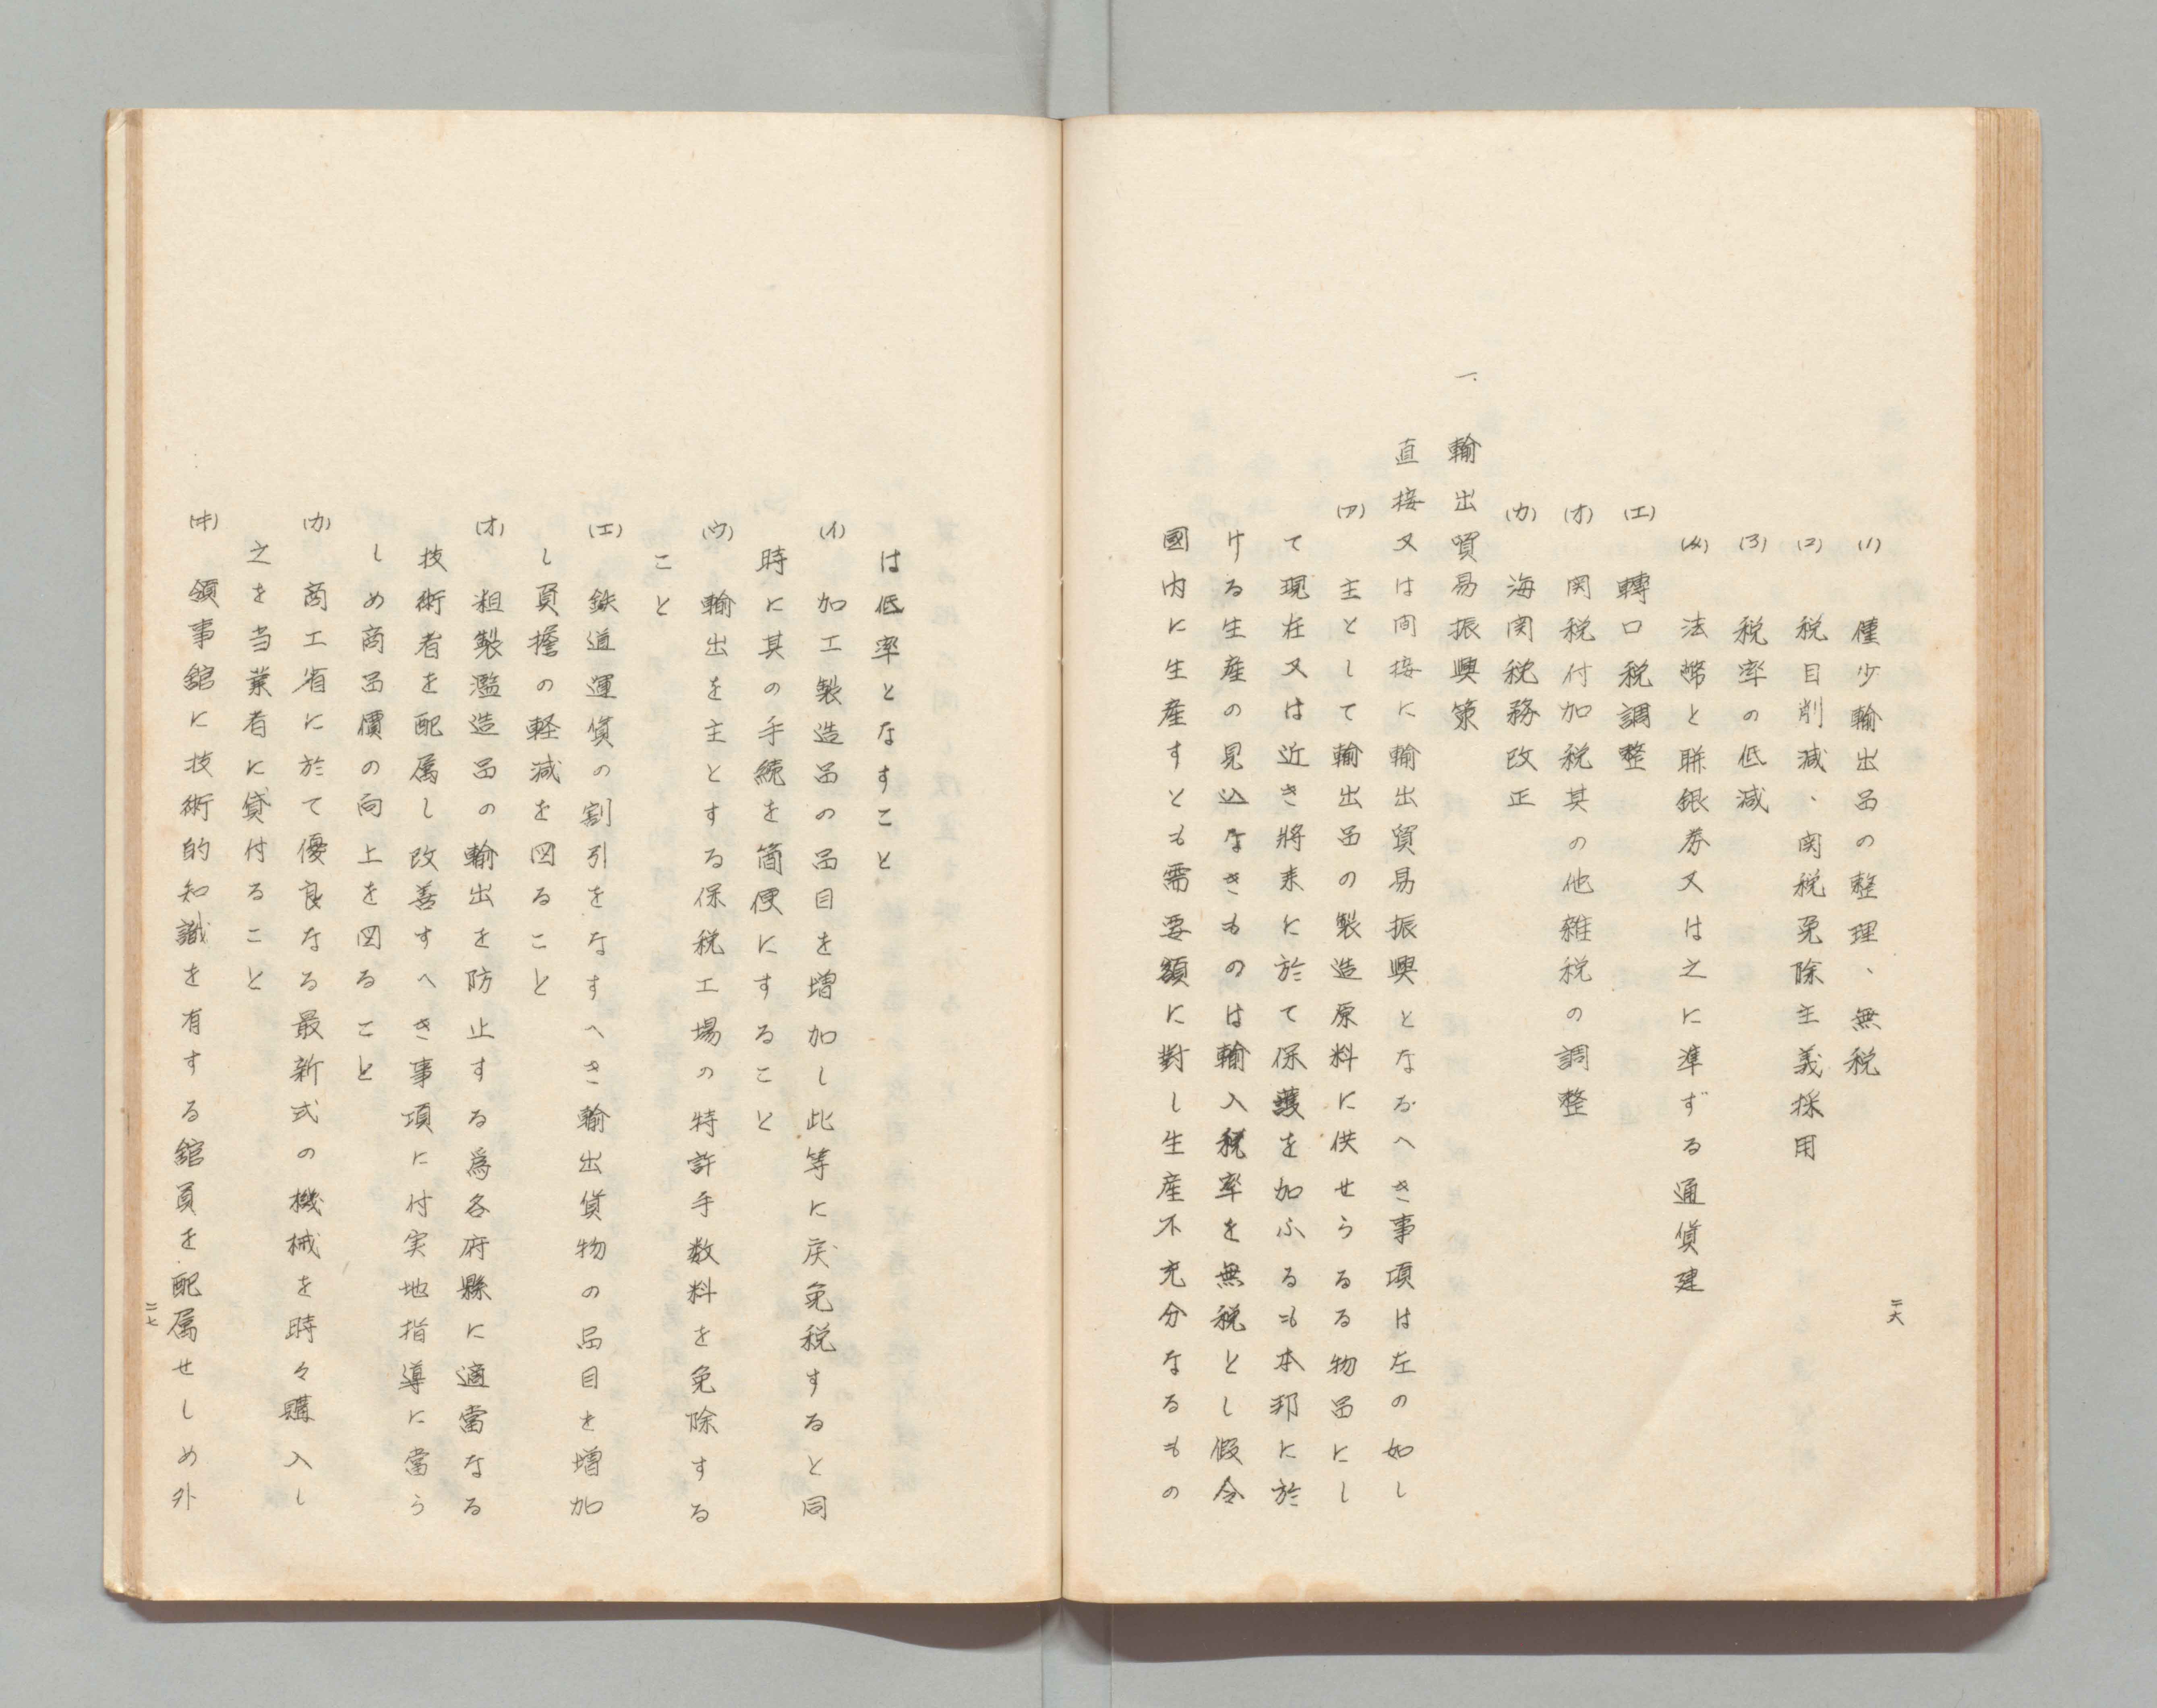 (1)　僅少輸出品の整理、無税
(2)　税目削減、関税免除主義採用
(3)　税率の低減
(4)　法幣と聯銀券又は之に準ずる通貨建
(エ)　轉口税調整
(オ)　関税付加税其の他雑税の調整
(カ)　海関税務改正
一.　輸出貿易振興策
直接又は間接に輸出貿易振興となるへき事項は左の如し
(ア)　主として輸出品の製造原料に供せらるる物品にし
て現在又は近き將来に於て保護を加ふるも本邦に於
ける生産の見込なきものは輸入税率を無税とし假令
國内に生産すとも需要額に對し生産不充分なるもの
二六
は低率となすこと
(イ)　加工製造品の品目を増加し此等に戻免税すると同
時に其の手続を簡便にすること
(ウ)　輸出を主とする保税工場の特許手数料を免除する
こと
(エ)　鉄道運賃の割引をなすへき輸出貨物の品目を増加
し負擔の軽減を図ること
(オ)　粗製濫造品の輸出を防止する爲各府縣に適當なる
技術者を配属し改善すへき事項に付実地指導に當ら
しめ商品價の向上を図ること
(カ)　商工省に於て優良なる最新式の機械を時々購入し
之を当業者に貸付ること
(キ)　領事舘に技術的知識を有する舘員を配属せしめ外
二七